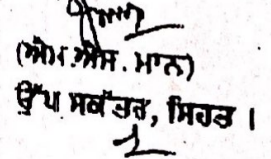 (ਐਮ.ਐਸ.ਮਾਨ)
ਉੱਪ ਸਕੱਤਰ, ਸਿਹਤ ।